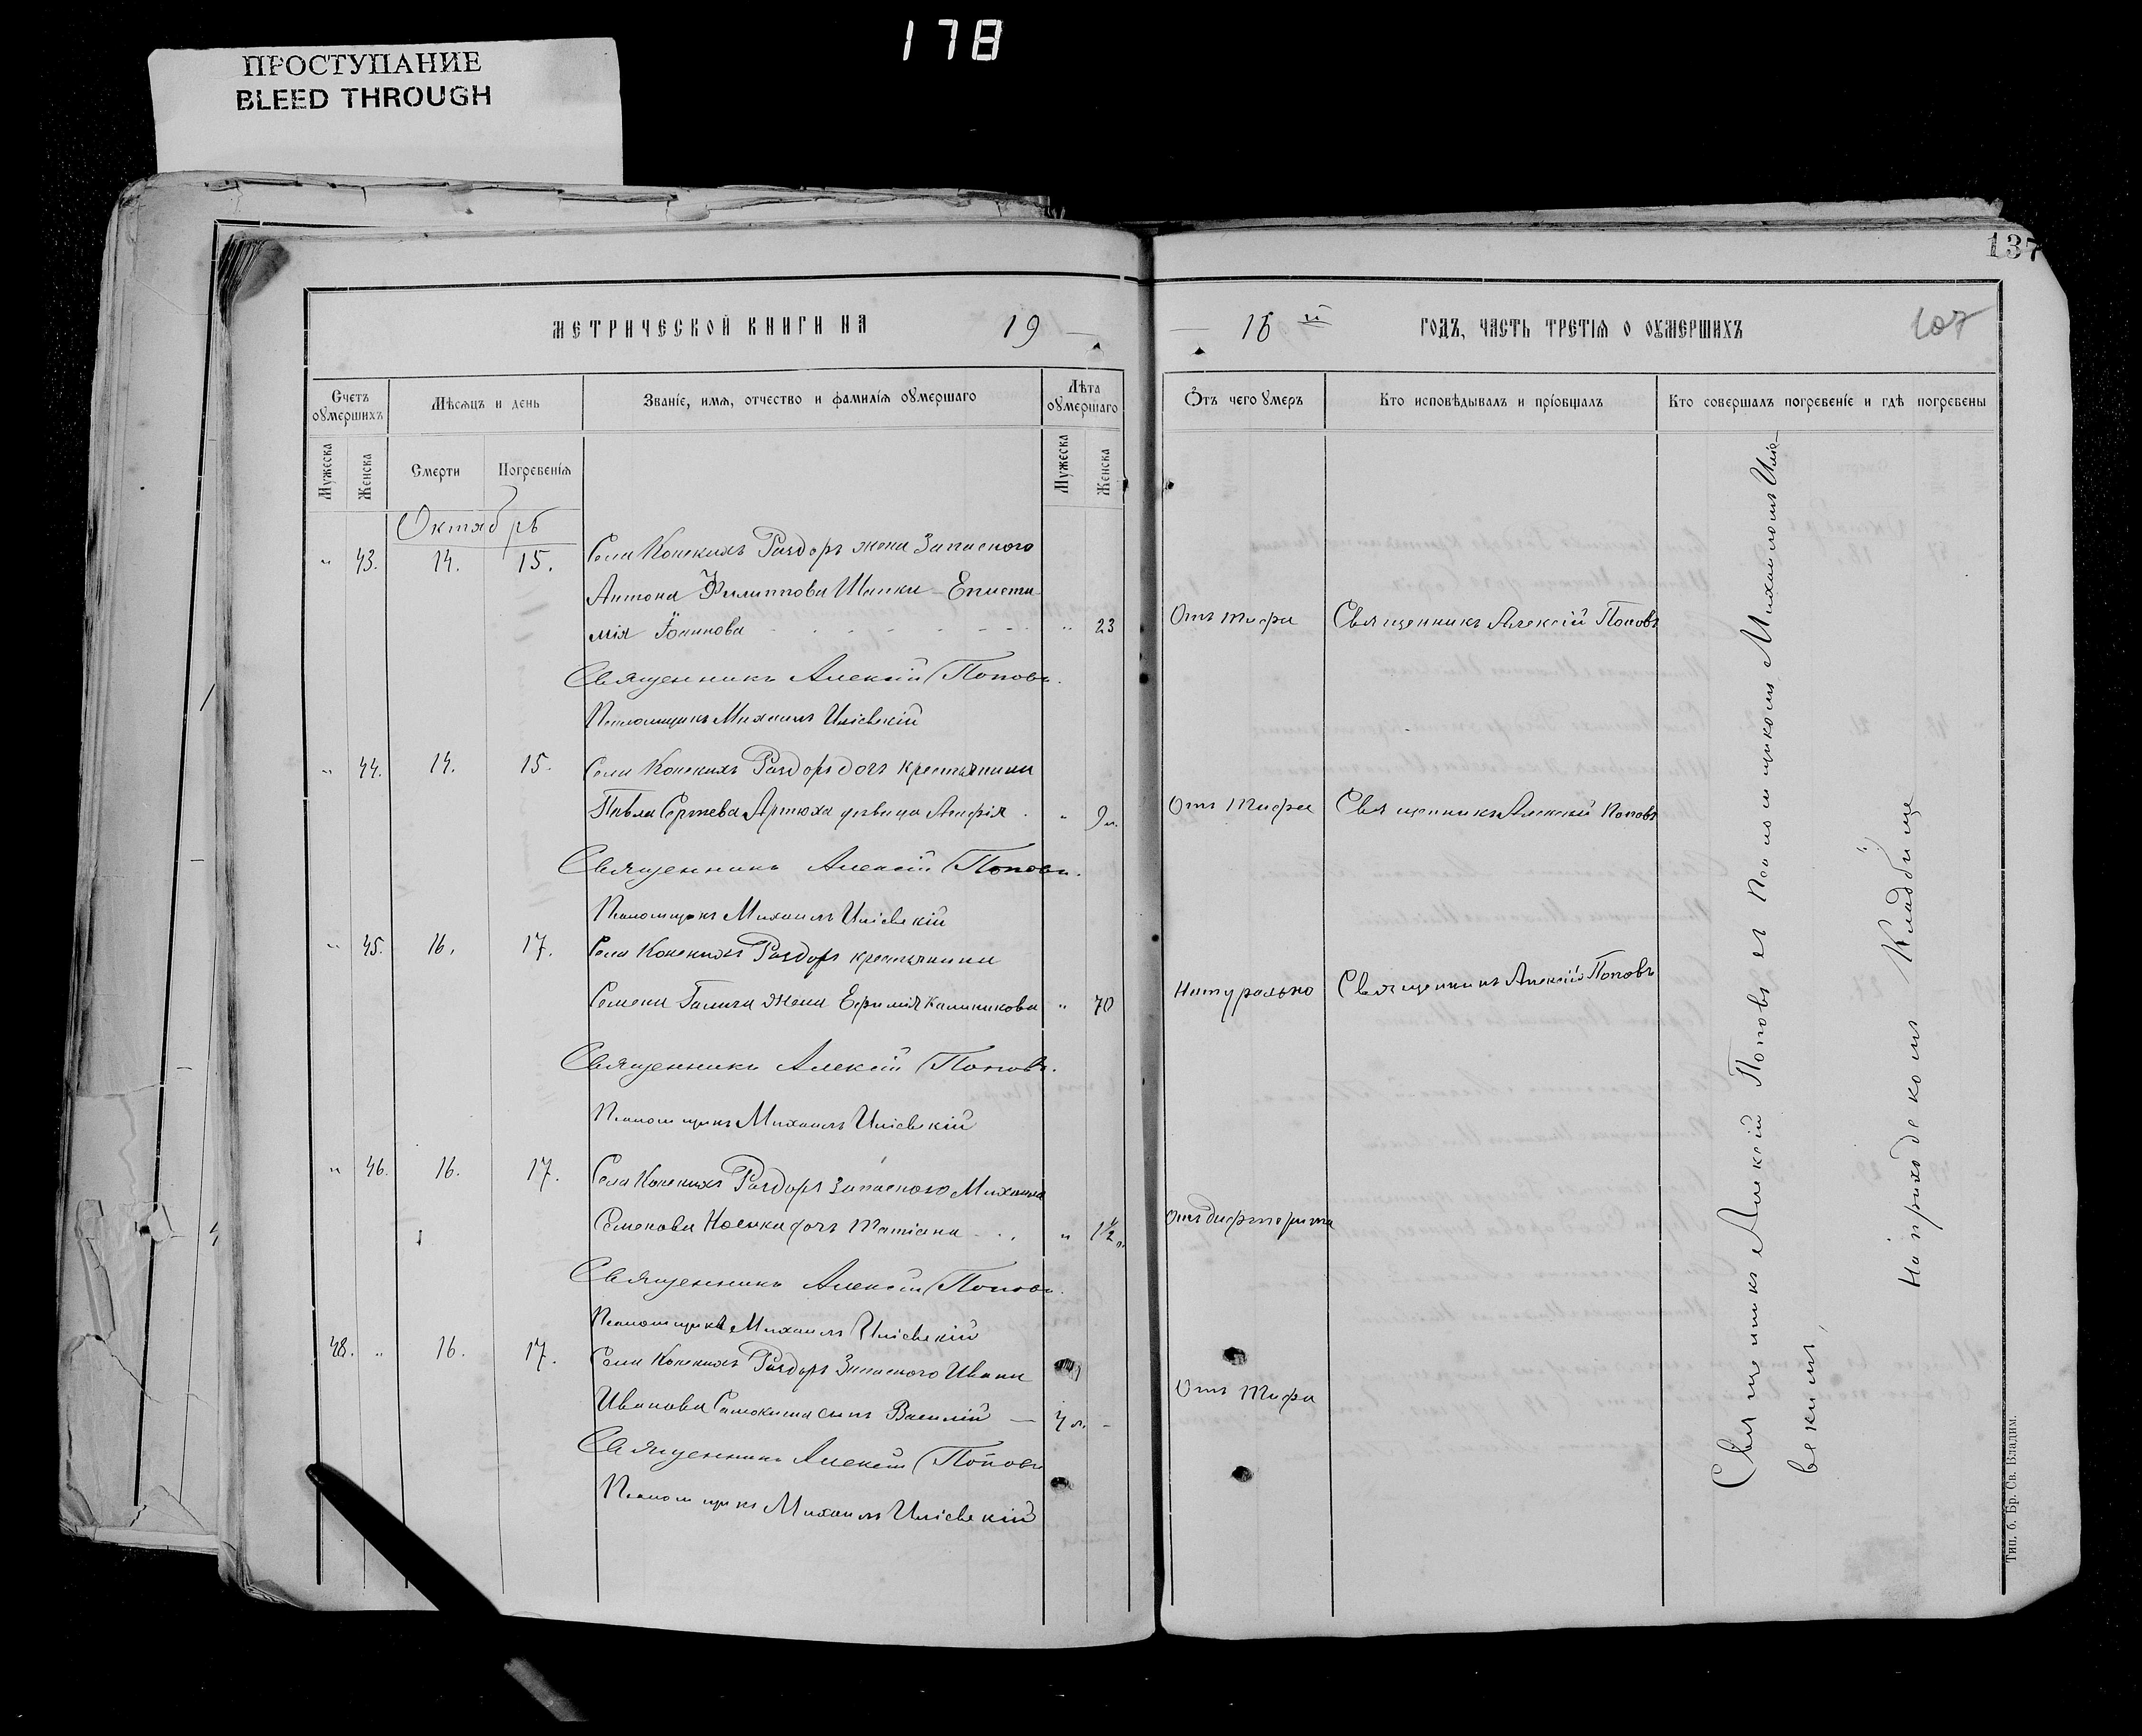 178
ПРОСТУПАНИЕ
BLEED THROUGH
137
МЕТРИЧЕСКОЙ КНИГИ НА 19
16 й ГОДЪ, ЧАСТЬ ТРЕТІЯ О ОУМЕРШИХЪ
107
Счетъ оумершихъ
Мѣсяцъ и день
Званіе, имя, отчество и фамилія оумершаго
Лѣта оумершаго
Отъ чего умеръ
Кто исповѣдывалъ и пріобщалъ
Кто совершалъ погребеніе и гдѣ погребены
Мужеска
Женска
Смерти
Погребенія
Мужеска
Женска
Октябрь
" 43. 14. 15. Села Конскихъ Раздоръ жена Запасного
Антона Филиппова Шапки - Еписти-
мія Іоаннова " 23 Отъ тифа Священникъ Алексій Поповъ
Священникъ Алексій Поповъ.
Псаломщикъ Михаилъ Иліевскій
" 44. 14. 15. Села Конскихъ Раздоръ дочь крестьянина
Павла Сергѣева Артюха дѣвица Агафія " 9 л. Отъ тифа Священникъ Алексій Поповъ
Священникъ Алексій Поповъ.
Псаломщикъ Михаилъ Иліевскій
" 45. 16. 17. Села Конскихъ Раздоръ крестьянина
Семена Галича жена Ефимія Калиникова " 70 Натурально Священникъ Алексій Поповъ
Священникъ Алексій Поповъ.
Псаломщикъ Михаилъ Иліевскій
" 46. 16. 17. Села Конскихъ Раздоръ Запасного Михаила
Семенова дочь Татіана " 1½ л. Отъ дифтерита
Священникъ Алексій Поповъ.
Псаломщикъ Михаилъ Иліевскій
48. " 16. 17. Села Конскихъ Раздоръ Запасного Ивана
Иванова Самокиша сынъ Василій — 4 л. - Отъ Тифа
Священникъ Алексій Поповъ
Псаломщикъ Михаилъ Иліевскій
Священникъ Алексій Поповъ съ Псаломщикомъ Михаиломъ Иліе-
вскимъ,
На приходскомъ Кладбище
Тип. б. Бр. Св. Владим.